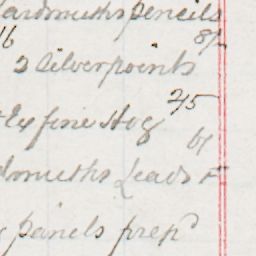 Hardmuths pencils
16 8/-
2 Silverpoints
Ex fine Hog 2/5
6/
dmuths Leads F
panels prepd